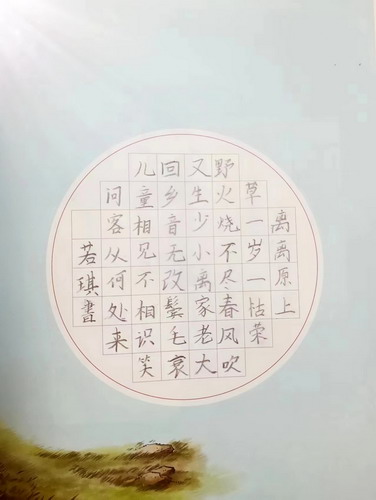 离离原上
草一岁一枯荣
野火烧不尽春风吹
又生少小离家老大
回乡音无改鬓毛衰
儿童相见不相识笑
问客从何处来
若琪書